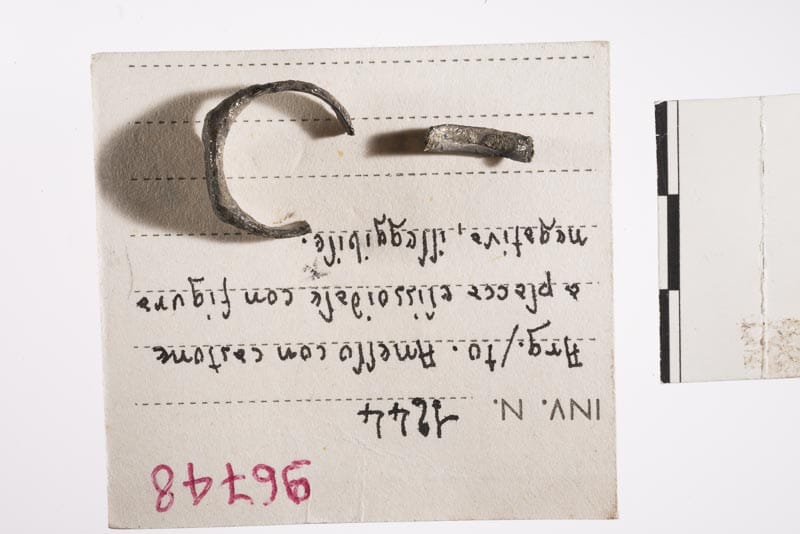 96748
INV. N. 1244
Arg./to. Anello con castone
a placca elissoidale con figura
negativa, illeggibile.